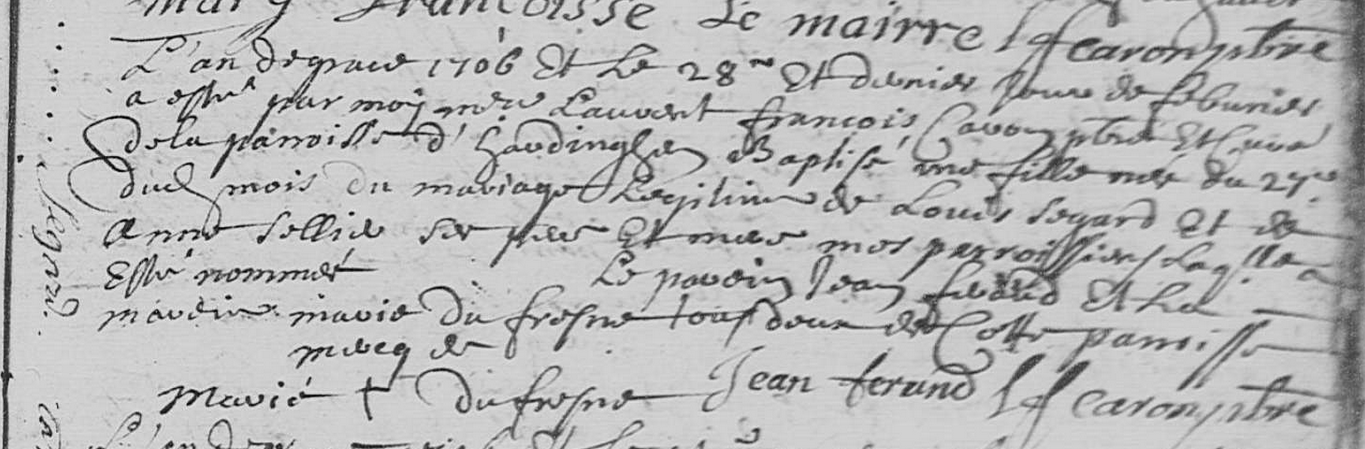 mary francoisse Le mairre L f caron ptbre
L'an de grace 1706 Et Le 28me Et dernier Jour de feburier
a esté par moy mre Lauvent francois Caron ptbre Et Curé
de la parroisse d'hardinghen Baptisé une fille née du 27me
dud mois du mariage Legitime de Louis Segard Et de
Anne Sellier ses pere Et mere mes parroissiens Laqlle a
Esté nommée Le parein Jean ferand Et La
mareine marie du fresne tous deux de Cette parroisse
mercq de
Marie + du fresne Jean ferand L f caron ptbre
Segard